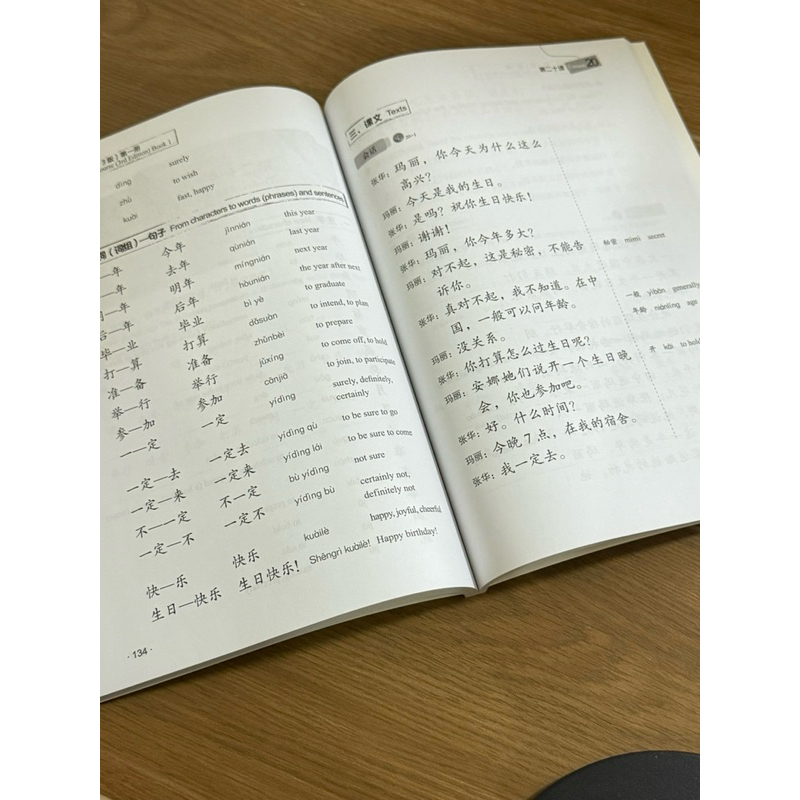 3版）第一册
ourse (3rd Edition) Book 1
dìng surely
zhù to wish
kuài fast, happy
词（词组）—句子 From characters to words (phrases) and sentences
—年 今年 jīnnián this year
—年 去年 qùnián last year
—年 明年 míngnián next year
后—年 后年 hòunián the year after next
毕—业 毕业 bì yè to graduate
打—算 打算 dǎsuàn to intend, to plan
准—备 准备 zhǔnbèi to prepare
举—行 举行 jǔxíng to come off, to hold
参—加 参加 cānjiā to join, to participate
一—定 一定 yídìng surely, definitely,
certainly
一定—去 一定去 yídìng qù to be sure to go
一定—来 一定来 yídìng lái to be sure to come
不—一定 不一定 bù yídìng not sure
一定—不 一定不 yídìng bù certainly not,
definitely not
快—乐 快乐 kuàilè happy, joyful, cheerful
生日—快乐 生日快乐！ Shēngrì kuàilè! Happy birthday!
· 134 ·
第二十课 20
三、课文 Texts
会话 20-1
张华：玛丽，你今天为什么这么
高兴？
玛丽：今天是我的生日。
张华：是吗？祝你生日快乐！
玛丽：谢谢！
张华：玛丽，你今年多大？
玛丽：对不起，这是秘密，不能告 秘密 mìmì secret
诉你。
张华：真对不起，我不知道。在中 一般 yìbān generally
国，一般可以问年龄。 年龄 niánlíng age
玛丽：没关系。
张华：你打算怎么过生日呢？
玛丽：安娜她们说开一个生日晚 开 kāi to hold
会，你也参加吧。
张华：好。什么时间？
玛丽：今晚7点，在我的宿舍。
张华：我一定去。